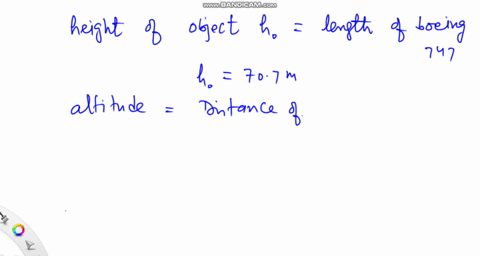 WWW.BANDICAM.COM
height of object h₀ = length of boeing
747
h₀ = 70.7 m
altitude = Distance of